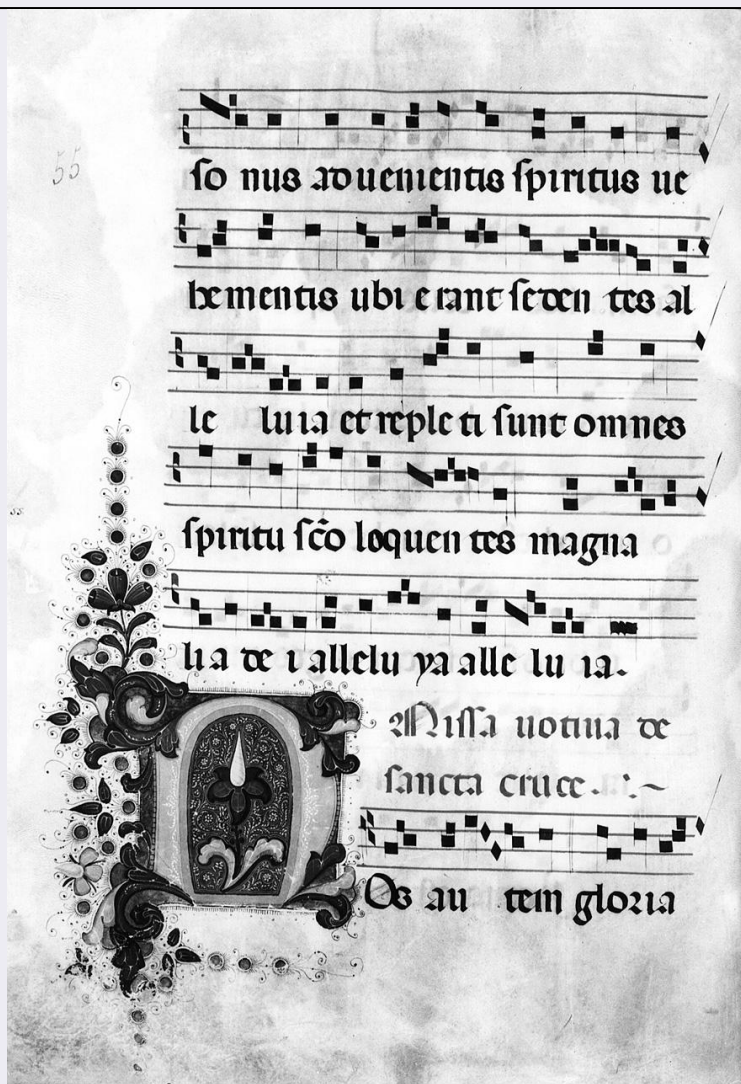 55
so nus advenientis spiritus ve
hementis ubi erant seden tes al
le lu ia et reple ti sunt omnes
spiritu sc̃o loquen tes magna
li a de i allelu ya alle lu ia.
Missa votiva de
sancta cruce . : . ~
N Os au tem gloria